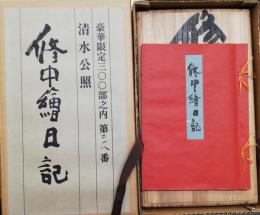 豪華限定三〇〇部之内 第二二八番
清水公照
修中繪日記
修中繪日記
修